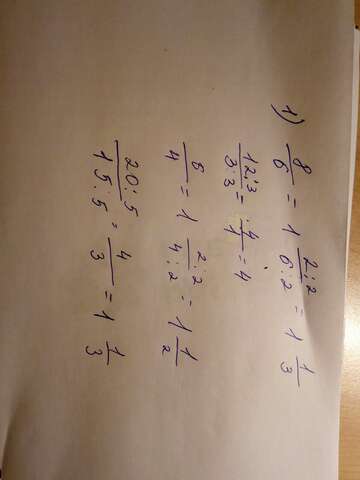 1) 8/6 = 1 2:2/6:2 = 1 1/3
12:3/3:3 = 4/1 = 4
6/4 = 1 2:2/4:2 = 1 1/2
20:5/15:5 = 4/3 = 1 1/3